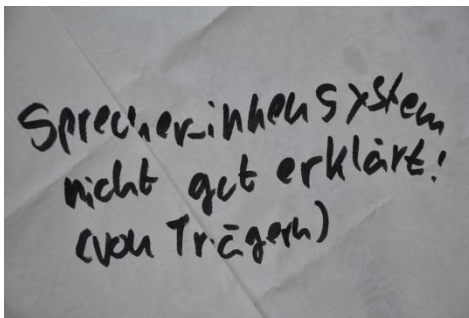 Sprecher_innensystem
nicht gut erklärt!
(von Trägern)